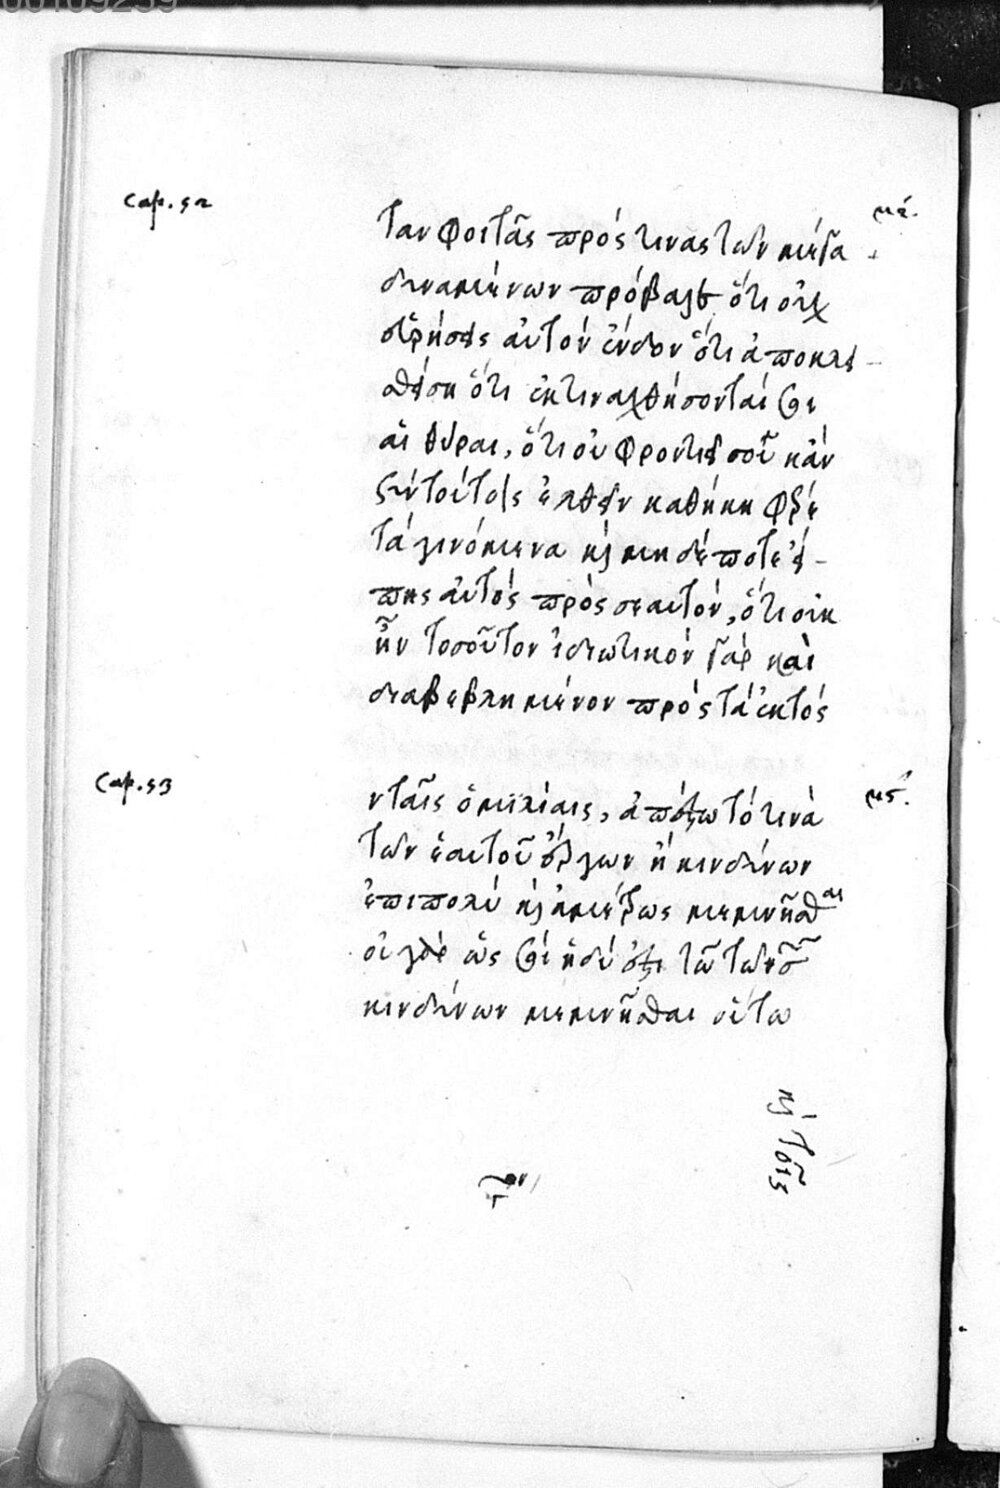 00109259
Cap. 52
με΄.
ταν φοιτᾶς πρός τινας τῶν μέγα
δυναμένων πρόβαλε ὅτι οὐχ
εὑρήσεις αὐτὸν ἔνδον ὅτι ἀποκλει-
σθήσῃ ὅτι ἐκτιναχθήσονταί σοι
αἱ θύραι, ὅτι οὐ φροντιεῖ σοῦ κἂν
σὺν τούτοις ἐλθεῖν καθήκῃ φέρε
τὰ γινόμενα καὶ μηδέποτε εἴ-
πῃς αὐτὸς πρὸς σεαυτόν, ὅτι οὐκ
ἦν τοσοῦτον ἰδιωτικὸν γὰρ καὶ
διαβεβλημένον πρὸς τὰ ἐκτός
Cap. 53
μς΄.
ν ταῖς ὁμιλίαις, ἀπέστω τό τινὰ
τῶν ἑαυτοῦ ἔργων ἢ κινδύνων
ἐπιπολὺ καὶ ἀμέτρως μεμνῆσθαι
οὐ γὰρ ὡς σοί ἡδύ ἐστι τὸ τῶν σῶν
κινδύνων μεμνῆσθαι οὕτω
καὶ τοῖς